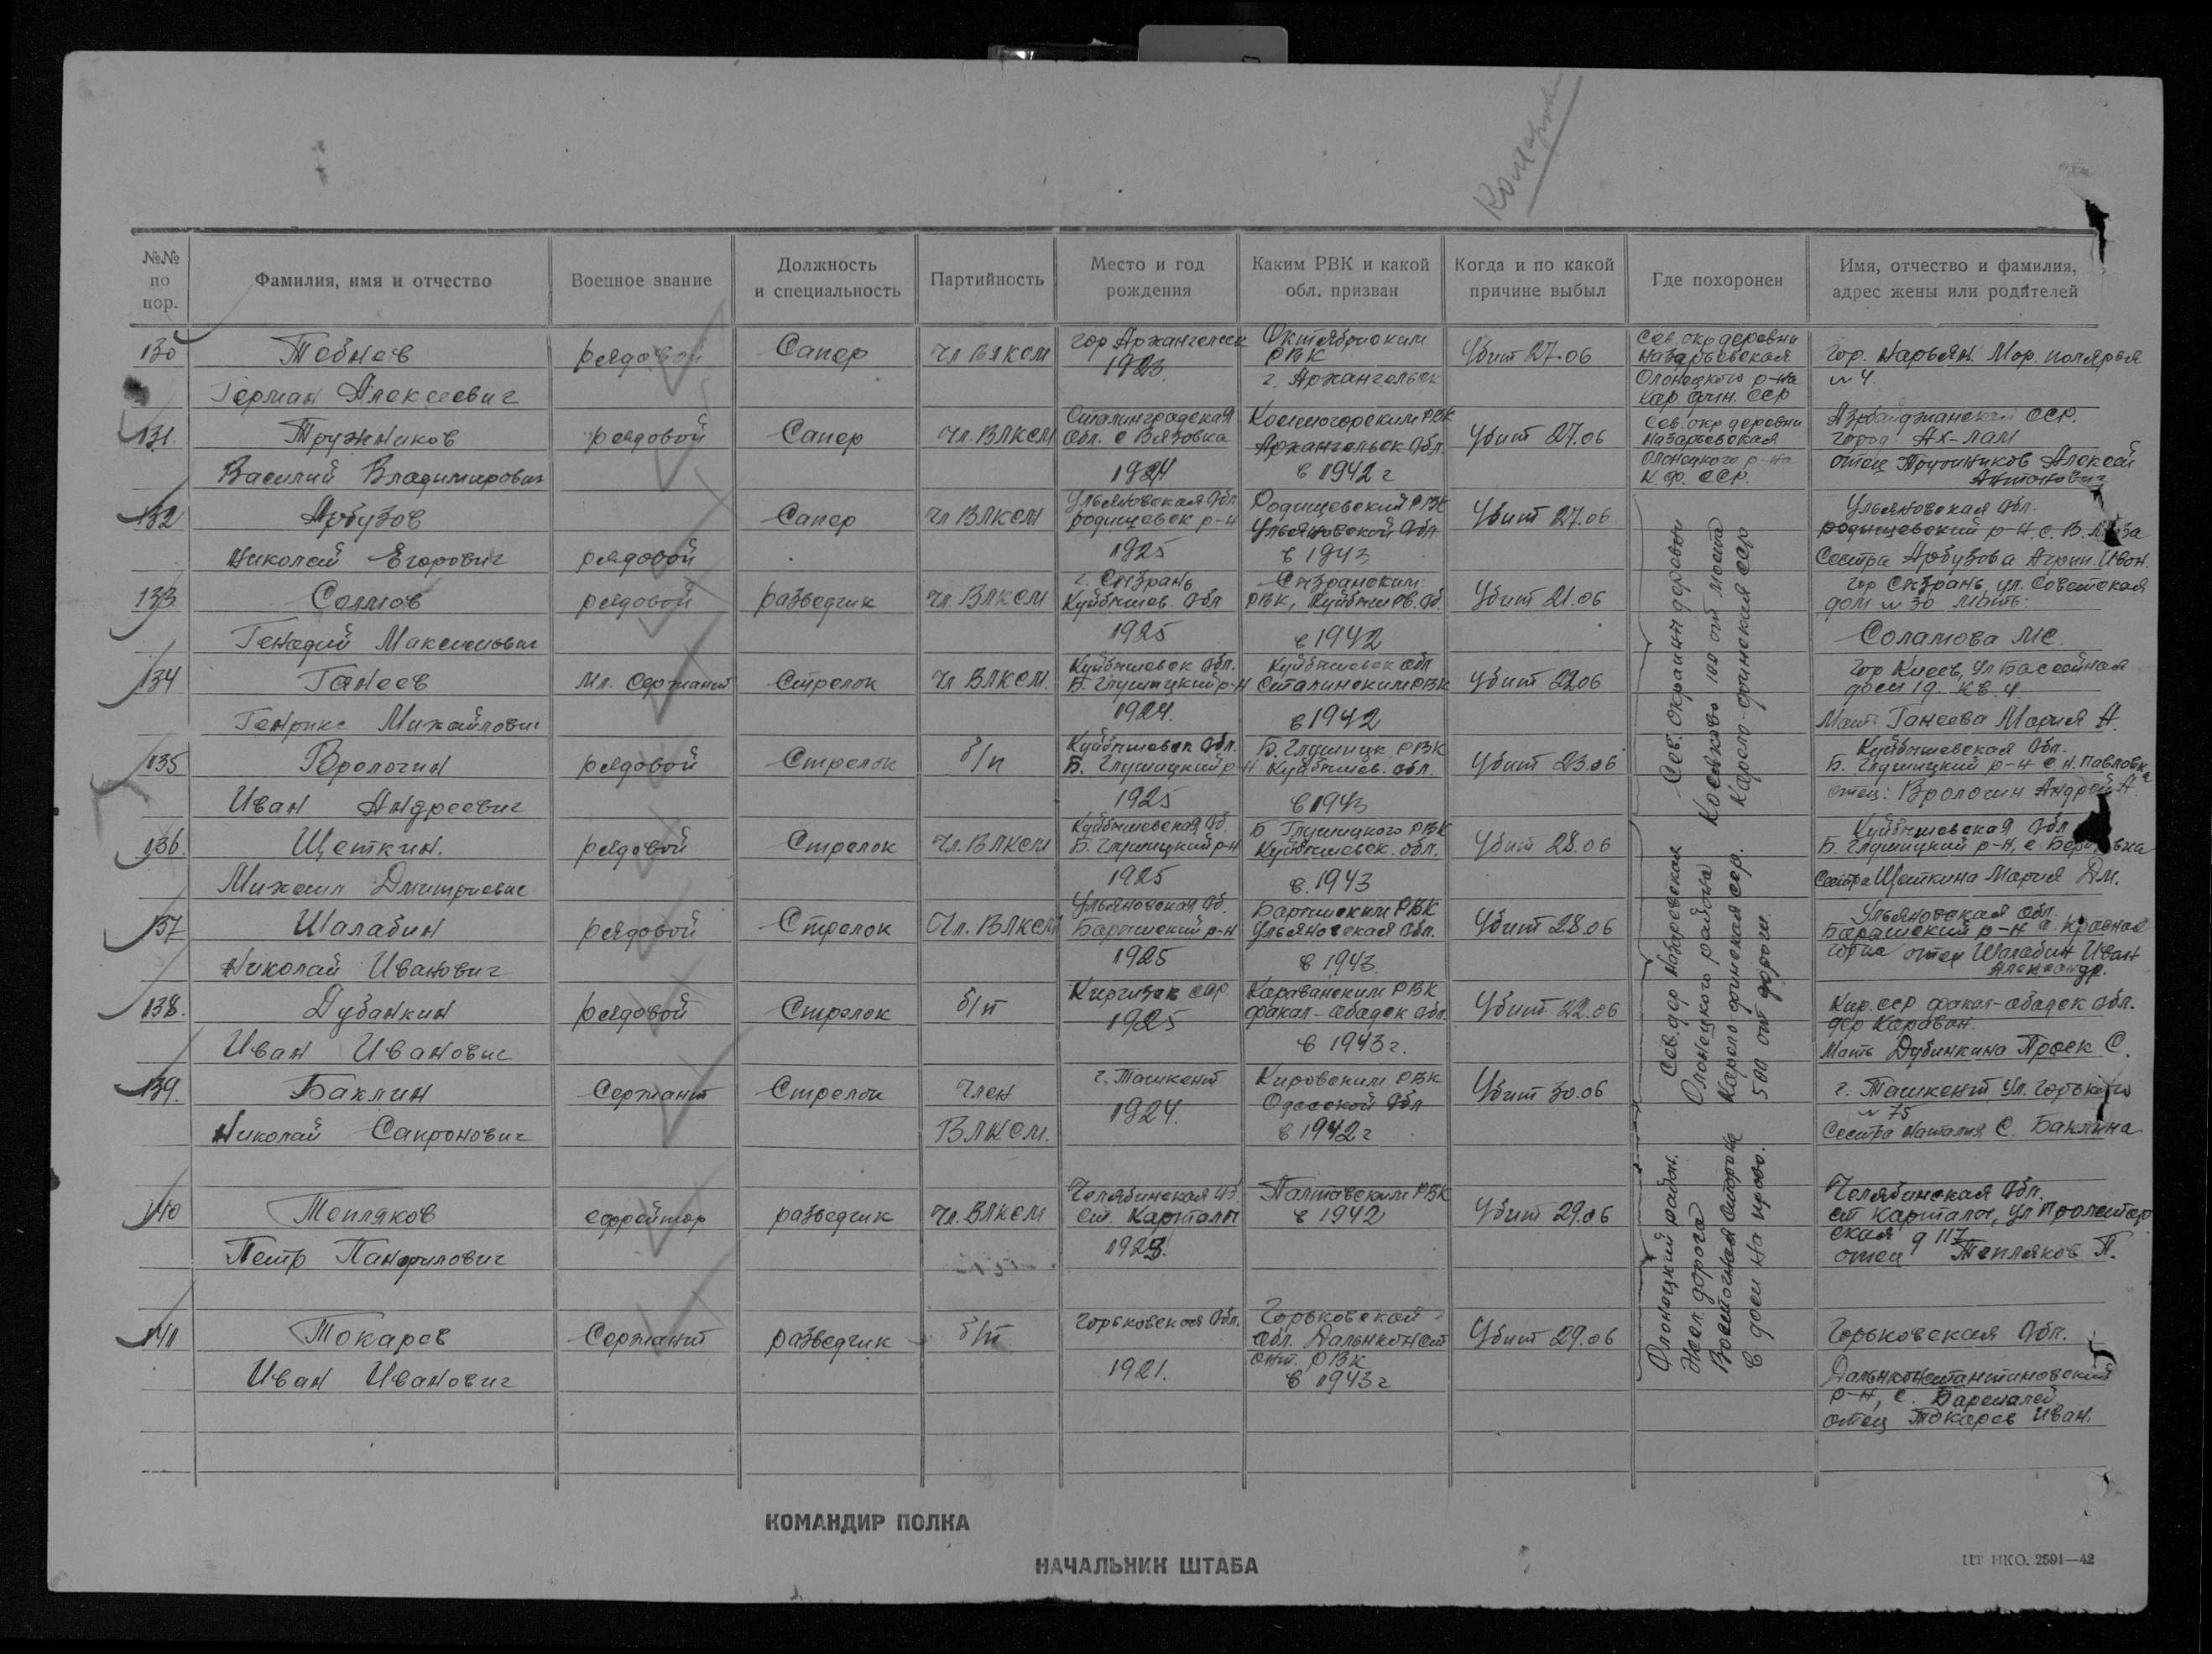 Комарова
№№ по пор.
Фамилия, имя и отчество
Военное звание
Должность и специальность
Партийность
Место и год рождения
Каким РВК и какой обл. призван
Когда и по какой причине выбыл
Где похоронен
Имя, отчество и фамилия, адрес жены или родителей
130
Тебнев
Герман Алексеевич
рядовой
Сапер
Чл ВЛКСМ
гор Архангельск
1923
Октябрьским
РВК
г. Архангельск
Убит 27.06
Сев. окр деревни
Назарьевская
Олонецкого р-на
Кар. фин. ССР
Гор. Нарьян. Мар. полярья
№ 4.
131.
Тружников
Василий Владимирович
рядовой
Сапер
Чл. ВЛКСМ
Сталинградская
обл. с Вязовка
1924
РВК
Архангельск обл.
в 1942 г
Убит 27.06
Сев. окр деревни
Назарьевская
Олонецкого р-на
К. ф. ССР.
Азрбайджанская ССР.
город Ах-лам
отец Тружников Алексей
Антонович
132
Арбузов
Николай Егорович
рядовой
Сапер
Чл ВЛКСМ
Ульяновская обл
родищевск р-н
1925
Родищевский РВК
Ульяновской обл
в 1943
Убит 27.06
Ульяновская обл.
родищевский р-н, с. В.
Сестра Арбузова Агрип. Иван.
133
Солмов
Генадий Максимович
рядовой
разведчик
Чл. ВЛКСМ
г. Сызрань
Куйбышев. обл
1925
Сызранским
РВК, Куйбышев. об.
в 1942
Убит 21.06
гор Сызрань, ул. Советская
дом № 30 мать:
Соламова МС.
134
Ганеев
Генрикс Михайлович
Мл. Сержант
Стрелок
Чл ВЛКСМ.
Куйбышевск обл.
Б. Глушицкий р-н
1924.
Куйбышевск обл
Сталинским РВК
в 1942
Убит 22.06
Гор Киев, ул Бассейная
дом 19 кв. 4.
Мать Ганеева Мария А.
135
Врологин
Иван Андреевич
рядовой
Стрелок
б/п
Куйбышевск обл.
Б. Глушицкий р-н
1925
Б. Глушицк РВК
Куйбышев. обл.
в 1943
Убит 23.06
Куйбышевская обл.
Б. Глушицкий р-н с. Н. Павловка
отец: Врологин Андрей А.
136.
Щеткин.
Михаил Дмитриевич
рядовой
Стрелок
Чл. ВЛКСМ
Куйбышевская об.
Б. Глушицкий р-н
1925
Б Глушицкого РВК
Куйбышевск. обл.
в. 1943
Убит 28.06
Куйбышевская обл
Б. Глушицкий р-н, с
сестра Щеткина Мария Дм.
137
Шалабин
Николай Иванович
рядовой
Стрелок
Чл. ВЛКСМ
Ульяновская об.
Барышский р-н
1925
Барышским РВК
Ульяновская обл.
в 1943.
Убит 28.06
Ульяновская обл.
Барашский р-н с. Красная
горка отец Шалабин Иван
Александр.
138.
Дубанкин
Иван Иванович
рядовой
Стрелок
б/п
Киргизск сср.
1925
Караванским РВК
факал-абадск обл.
в 1943 г.
Убит 22.06
Кир. сср факал-абадск обл.
дер Караван.
Мать Дубинкина Проск С.
139.
Баклин
Николай Сапронович
Сержант
Стрелок
Член
ВЛКСМ.
г. Ташкент
1924.
Кировским РВК
Одесской обл
в 1942 г
Убит 30.06
г. Ташкент ул. Горького
№ 75
Сестра Наталия С. Баклина
140
Тепляков
Петр Панфилович
ефрейтор
разведчик
Чл. ВЛКСМ
Челябинская об.
ст. Карталы
1923.
Палтавским РВК
в 1942
Убит 29.06
Челябинская обл.
ст карталы, ул Пролетар
ская д 117
отец Тепляков П.
141
Токарев
Иван Иванович
Сержант
разведчик
б/п
Горьковская обл.
1921.
Горьковской
обл. Дальнконст
ант. РВК
в 1943 г
Убит 29.06
Горьковская обл.
Дальнконстантиновский
р-н, с.
отец Токарев Иван.
Сев. окраин деревни
Косяково 100 от моста
Карело-финская ССР
Сев. дер Назаревская
Олонецкого района
Карело финская сср.
500 от дороги.
Олонецкий район.
Жел. дорога
Восточная сторона
КОМАНДИР ПОЛКА
НАЧАЛЬНИК ШТАБА
ЦТ НКО. 2591—42